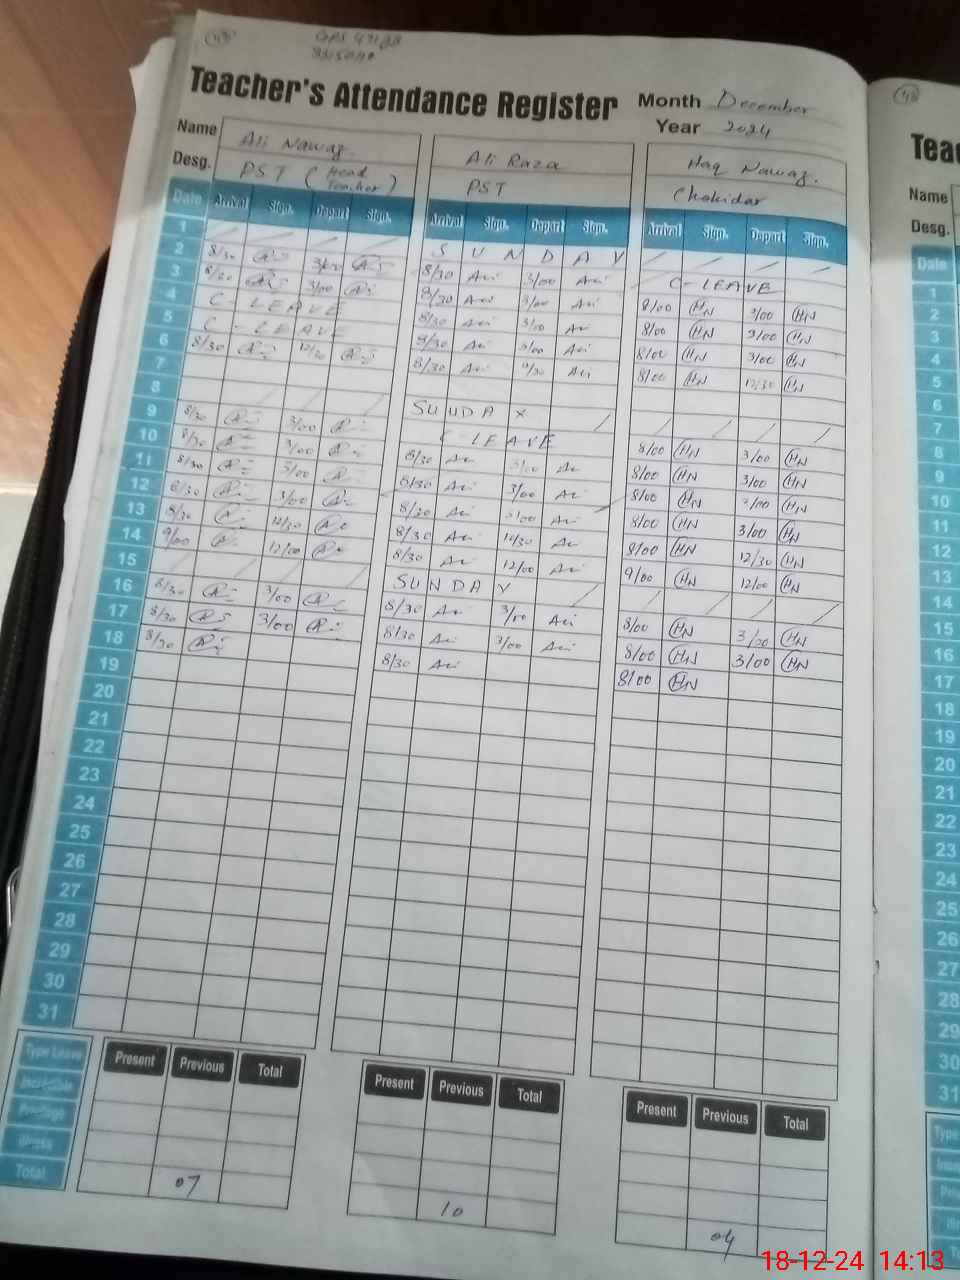 Teacher's Attendance Register Month December
Year 2024
Name Ali Nawaz Ali Raza Haq Nawaz.
Desg. PST (Head Teacher) PST Chokidar
Date Arrival Sign. Depart Sign. Arrival Sign. Depart Sign. Arrival Sign. Depart Sign.
1 / / / / S U N D A Y / / / /
2 8/30 3/00 8/30 Ali 3/00 Ali C-LEAVE
3 8/30 3/00 8/30 Ali 3/00 Ali 8/00 HN 3/00 HN
4 C-LEAVE 8/30 Ali 3/00 Ali 8/00 HN 3/00 HN
5 C-LEAVE 8/30 Ali 3/00 Ali 8/00 HN 3/00 HN
6 8/30 12/30 8/30 Ali Ali 8/00 HN 12/30 HN
7
8 / / / / SUNDAY / / / / /
9 8/30 3/00 C LEAVE 8/00 HN 3/00 HN
10 8/30 3/00 8/30 Ali 3/00 Ali 8/00 HN 3/00 HN
11 8/30 3/00 8/30 Ali 3/00 Ali 8/00 HN 3/00 HN
12 8/30 3/00 8/30 Ali 3/00 Ali 8/00 HN 3/00 HN
13 8/30 12/30 8/30 Ali 12/30 Ali 8/00 HN 12/30 HN
14 9/00 12/00 8/30 Ali 12/00 Ali 9/00 HN 12/00 HN
15 / / / / SUNDAY / / / / /
16 8/30 3/00 8/30 Ali 3/00 Ali 8/00 HN 3/00 HN
17 8/30 3/00 8/30 Ali 3/00 Ali 8/00 HN 3/00 HN
18 8/30 8/30 Ali 8/00 HN
19
20
21
22
23
24
25
26
27
28
29
30
31
Type Leave Present Previous Total Present Previous Total Present Previous Total
Privilege
Illness
Total 07 10 04
Teac
Name
Desg.
Date
1
2
3
4
5
6
7
8
9
10
11
12
13
14
15
16
17
18
19
20
21
22
23
24
25
26
27
28
29
30
31
18-12-24 14:13